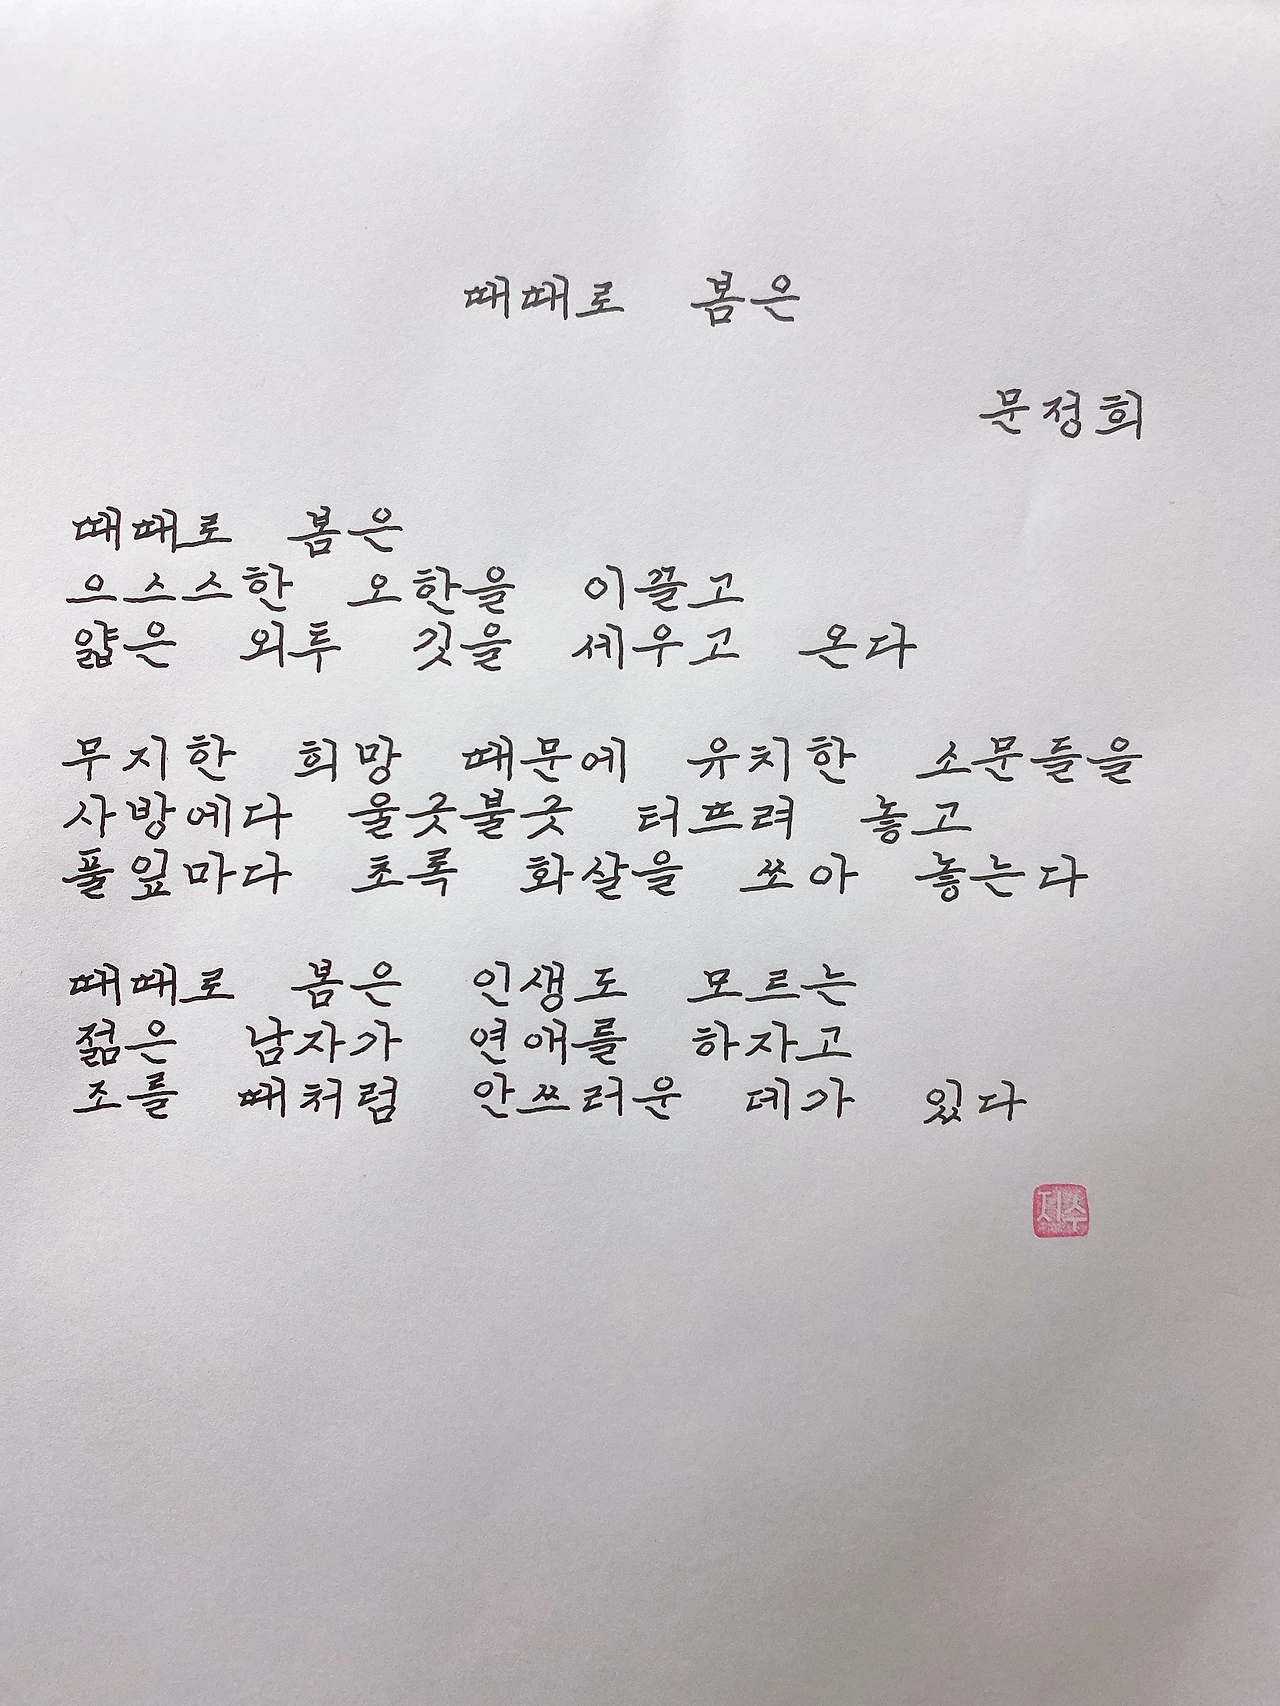 때때로 봄은
문정희
때때로 봄은
으스스한 오한을 이끌고
얇은 외투 깃을 세우고 온다
무지한 희망 때문에 유치한 소문들을
사방에다 울긋불긋 터뜨려 놓고
풀잎마다 초록 화살을 쏘아 놓는다
때때로 봄은 인생도 모르는
젊은 남자가 연애를 하자고
조를 때처럼 안쓰러운 데가 있다